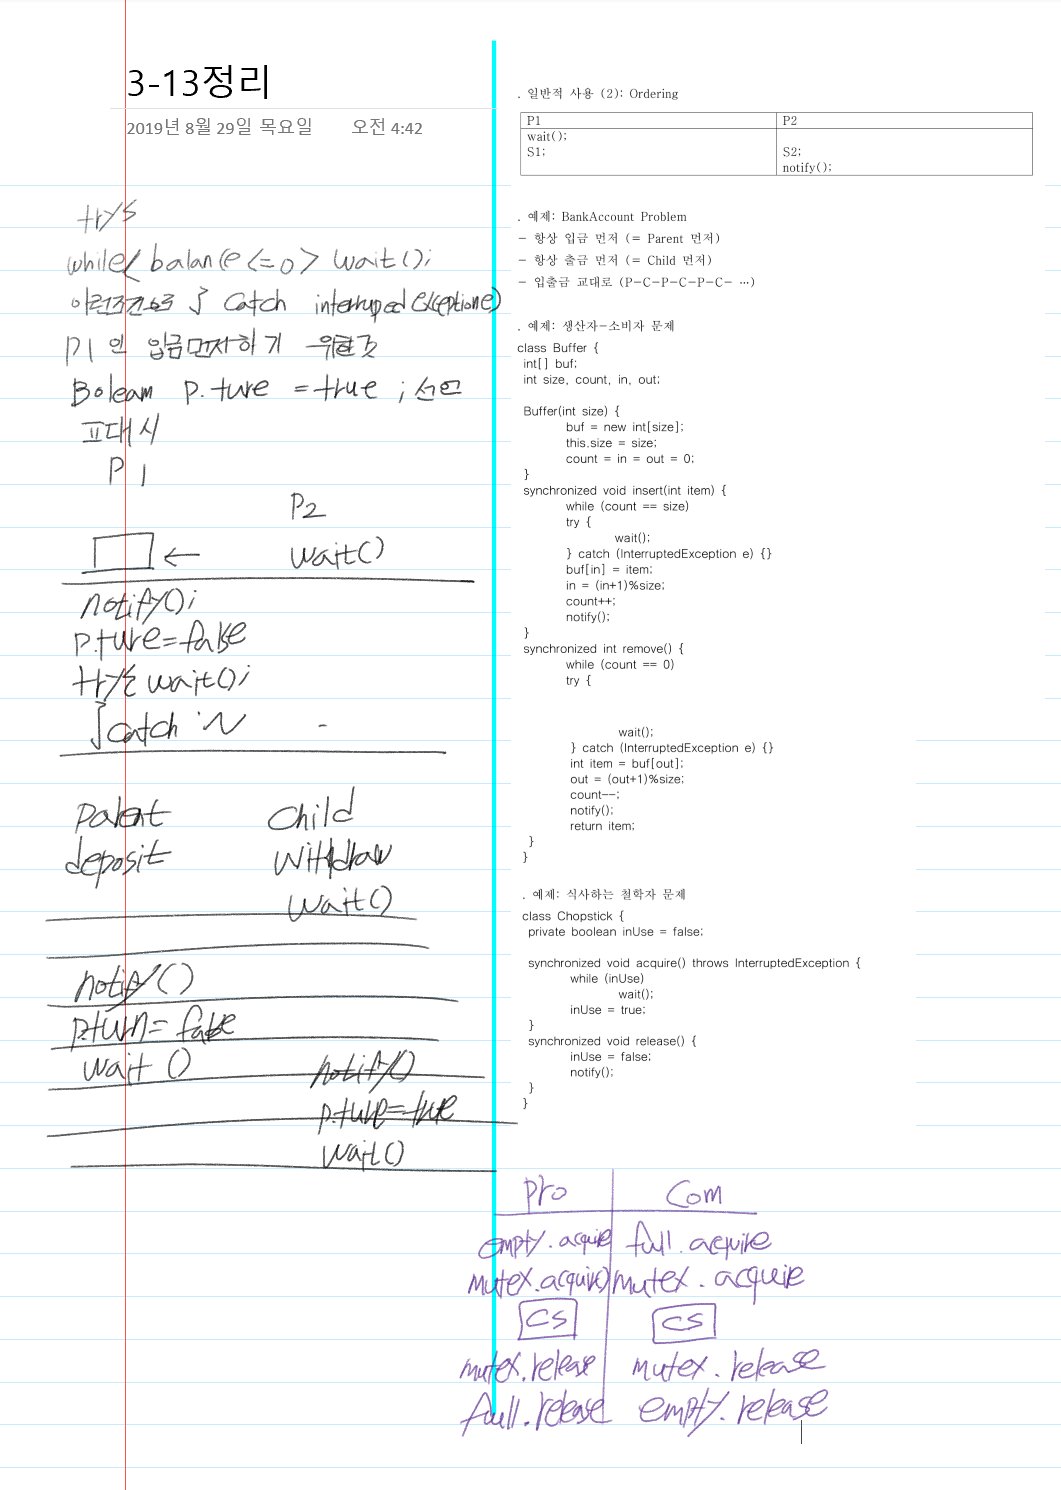 3-13정리
2019년 8월 29일 목요일 오전 4:42
try{
while(balance <=0) wait();
이런조건으로 } catch interruped exception e)
P1인 입금먼저하기 위한것
Boleam p.ture = true ; 선언
교대시
P1
P2
← wait()
notify();
p.ture=false
try{ wait();
} catch ~ -
Parent Child
deposit withdraw
wait()
notify()
p.turn= false
wait ()
notify()
p.ture=true
wait()
. 일반적 사용 (2): Ordering
P1 P2
wait();
S1; S2;
notify();
. 예제: BankAccount Problem
- 항상 입금 먼저 (= Parent 먼저)
- 항상 출금 먼저 (= Child 먼저)
- 입출금 교대로 (P-C-P-C-P-C- …)
. 예제: 생산자-소비자 문제
class Buffer {
int[] buf;
int size, count, in, out;
Buffer(int size) {
buf = new int[size];
this.size = size;
count = in = out = 0;
}
synchronized void insert(int item) {
while (count == size)
try {
wait();
} catch (InterruptedException e) {}
buf[in] = item;
in = (in+1)%size;
count++;
notify();
}
synchronized int remove() {
while (count == 0)
try {
wait();
} catch (InterruptedException e) {}
int item = buf[out];
out = (out+1)%size;
count--;
notify();
return item;
}
}
. 예제: 식사하는 철학자 문제
class Chopstick {
private boolean inUse = false;
synchronized void acquire() throws InterruptedException {
while (inUse)
wait();
inUse = true;
}
synchronized void release() {
inUse = false;
notify();
}
}
Pro Com
empty.acquire full.acquire
mutex.acquire) mutex.acquire
CS CS
mutex.release mutex.release
full.release empty.release